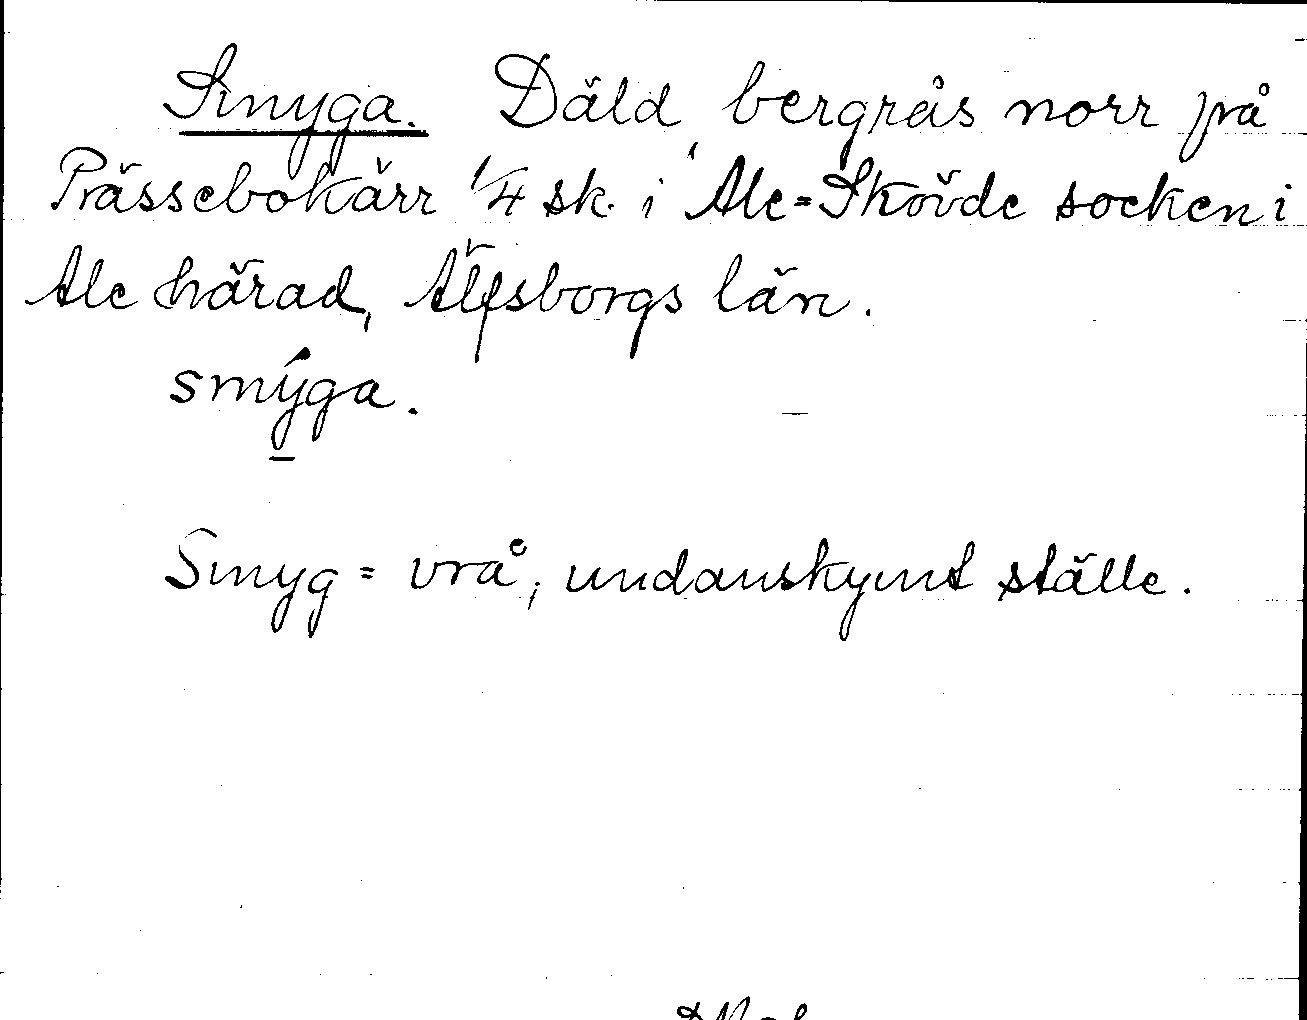 Smyga. Däld bergrås norr på
Prässebokärr 1/4 sk. i Ale=Skövde socken i
Ale härad, Älfsborgs län.
smýga.
Smyg = vrå; undanskymt ställe.